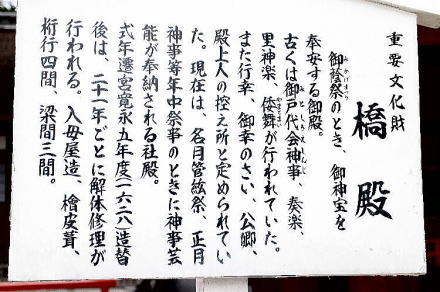 重要文化財
橋殿
御蔭祭のとき、御神宝を
奉安する御殿。
古くは御戸代会神事、奏楽、
里神楽、倭舞が行われていた。
また行幸、御幸のさい、公卿、
殿上人の控え所と定められてい
た。現在は、名月管絃祭、正月
神事等年中祭事のときに神事芸
能が奉納される社殿。
式年遷宮寛永五年度(一六二八)造替
後は、二十一年ごとに解体修理が
行われる。入母屋造、檜皮葺、
桁行四間、梁間三間。